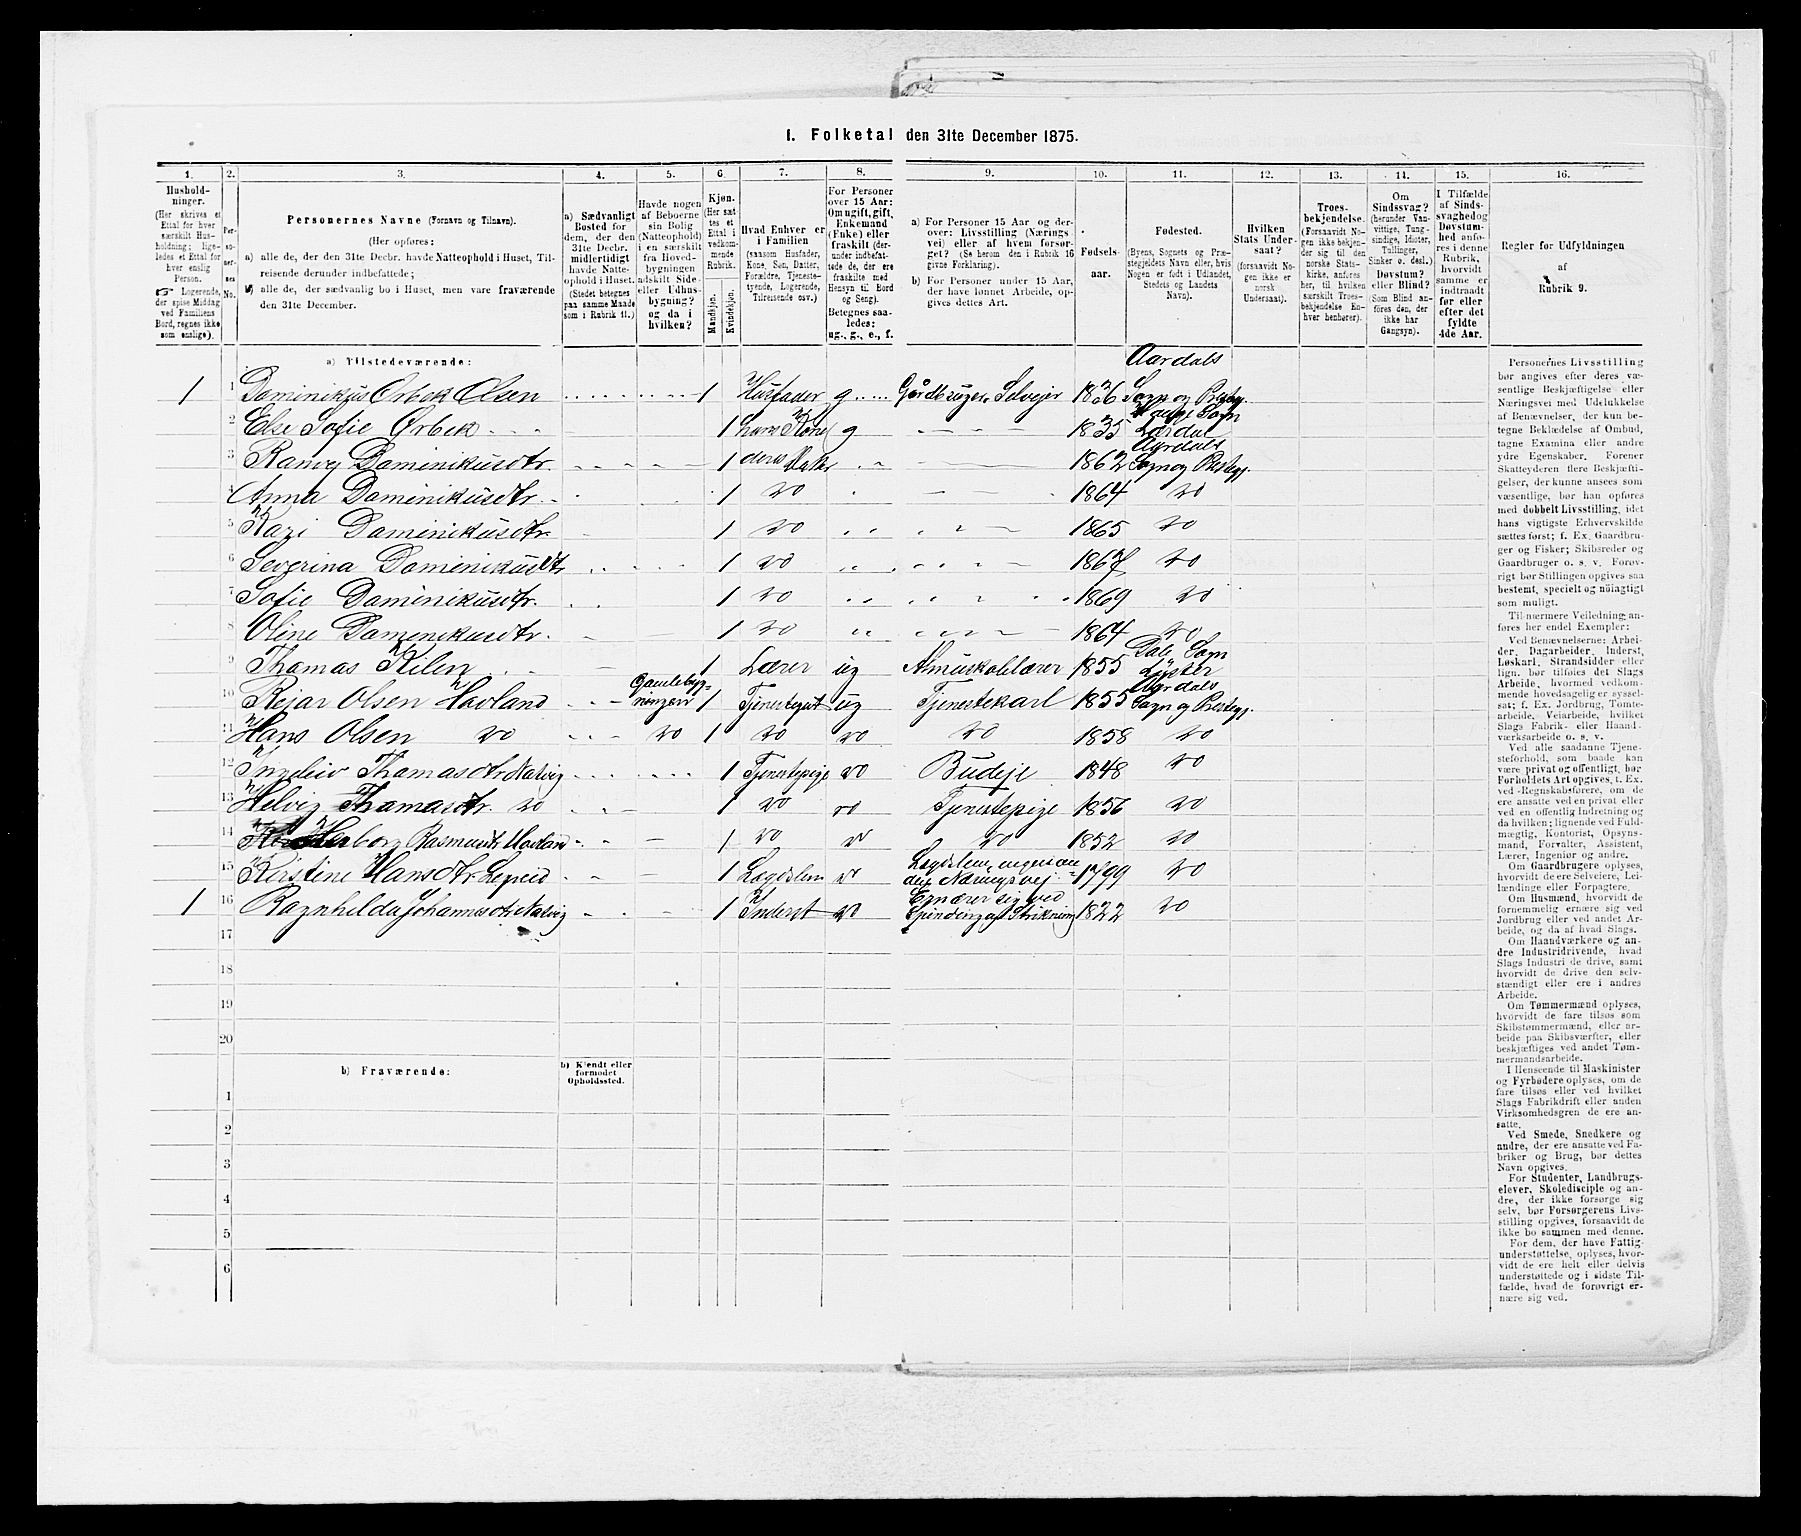 I. Folketal den 31te December 1875.
1. 2. 3. 4. 5. 6. 7. 8. 9. 10. 11. 12. 13. 14. 15. 16.
Hushold-
ninger.
(Her skrives et
Ettal for hver
særskilt Hus-
holdning; lige-
ledes et Ettal for
hver enslig
Person.
☞ Logerende,
der spise Middag
ved Familiens
Bord, regnes ikke
som enslige).
Per-
so-
ner-
nes
No.
Personernes Navne (Fornavn og Tilnavn).
(Her opføres:
a) alle de, der den 31te Decbr. havde Natteophold i Huset, Til-
reisende derunder indbefattede;
b) alle de, der sædvanlig bo i Huset, men vare fraværende
den 31te December.
a) Sædvanligt
Bosted for
dem, der den
31te Decbr.
midlertidigt
havde Natte-
ophold i Huset.
(Stedet betegnes
paa samme Maade
som i Rubrik 11.)
Havde nogen
af Beboerne
sin Bolig
(Natteophold)
i en særskilt
fra Hoved-
bygningen
adskilt Side-
eller Udhus-
bygning?
og da i
hvilken?
Kjøn.
(Her sæt
tes et
Ettal i
vedkom-
mende
Rubrik.
Mandkjøn.
Kvindekjøn.
Hvad Enhver er
i Familien
(saasom Husfader,
Kone, Søn, Datter,
Forældre, Tjeneste-
tyende, Logerende,
Tilreisende osv.)
For Personer
over 15 Aar:
Om ugift, gift,
Enkemand
(Enke) eller
fraskilt (der-
under indbefat-
tede de, der ere
fraskilte med
Hensyn til Bord
og Seng).
Betegnes saa-
ledes:
ug., g., e., f.
a) For Personer 15 Aar og der-
over: Livsstilling (Nærings
vei) eller af hvem forsør-
get? (Se herom den i Rubrik 16
givne Forklaring).
b) For Personer under 15 Aar,
der have lønnet Arbeide, op-
gives dettes Art.
Fødsels-
aar.
Fødested.
(Byens, Sognets og Præ-
stegjeldets Navn eller, hvis
Nogen er født i Udlandet,
Stedets og Landets
Navn).
Hvilken
Stats Under-
saat?
(forsaavidt No-
gen ikke er
norsk
Undersaat).
Troes-
bekjendelse.
(Forsaavidt No-
gen ikke bekjen-
der sig til den
norske Stats-
kirke, anføres
her, til hvilken
særskilt Troes-
bekjendelse En-
hver henhører).
Om
Sindssvag?
(herunder Van-
vittige, Tung-
sindige, Idioter,
Tullinger,
Sinker o. desl.)
Døvstum?
eller Blind?
(Som Blind an-
føres den, der
ikke har
Gangsyn).
I Tilfælde
af Sinds-
svaghed og
Døvstum-
hed anfø-
res i denne
Rubrik,
hvorvidt
samme er
indtraadt
før eller
efter det
fyldte
4de Aar.
Regler før Udfyldningen
af
Rubrik 9.
a) Tilstedeværende:
Aardals
1 1 Dominikus Ørbek Olsen 1 Husfader g Gårdbruger Selveier 1836 Sogn og Prestg.
2 Else Sofie Ørbek 1 hans Kone g 1835 Sogn Lærdal
3 Ranvei Dominikusdtr. 1 deres Dater 1862 Aardals Sogn og Prestegj.
4 Anna Dominikusdtr. 1 do 1864 do
5 Kari Dominikusdtr. 1 do 1865 do
6 Severina Dominikusdtr 1 do 1867 do
7 Sofie Dominikusdtr. 1 do 1869 do
8 Oline Dominikusdtr. 1 do 1864 do
9 Thomas Kilen 1 Lærer ug Almuskolelærer 1855 Dale Sogn Lyster
10 Rejar Olsen Hovland Gamlebyg-ningen 1 Tjenestegut ug Tjenestekarl 1855 Aardals Sogn og Prestegj.
11 Hans Olsen do do 1 do do do 1858 do
12 Ingeleiv Thomasdtr Natvig 1 Tjenestepige do Budeje 1848 do
13 Helvig Thomasdtr. do 1 do do Tjenestepige 1856 do
14 Herborg Rasmusdtr Hovland 1 do do do 1852 do
15 Kirstine Hansdtr 1 Lægdslem do Lægdslem, ingen anden Næringsvej 1799 do
1 16 Ragnhelda Johannesdtr Natvig 1 Inderst do Ernærer sig ved Spinding og Strikning 1822 do
17
18
19
20
b) Fraværende:
b) Kjendt eller
formodet
Opholdssted.
1
2
3
4
5
6
Personernes Livsstilling
bør angives efter deres væ-
sentlige Beskjæftigelse eller
Næringsvei med Udelukkelse
af Benævnelser, der kun be-
tegne Beklædelse af Ombud,
tagne Examina eller andre
ydre Egenskaber. Forener
Skatteyderen flere Beskjæfti-
gelser, der kunne ansees som
væsentlige, bør han opføres
med dobbelt Livsstilling, idet
hans vigtigste Erhvervskilde
sættes først; f. Ex. Gaardbru-
ger og Fisker; Skibsreder og
Gaardbruger o. s. v. Forøv-
rigt bør Stillingen opgives saa
bestemt, specielt og nöiagtigt
som muligt.
Til nærmere Veiledning an-
føres her endel Exempler:
Ved Benævnelserne: Arbei-
der, Dagarbeider, Inderst,
Løskarl, Strandsidder eller
lign. bør tilføies det Slags
Arbeide, hvormed vedkom-
mende hovedsagelig er syssel-
sat; f. Ex. Jordbrug, Tomte-
arbeide, Veiarbeide, hvilket
Slags Fabrik- eller Haand-
værksarbeide o. s. v.
Ved alle saadanne Tjene-
steforhold, som baade kan
være privat og offentligt, bør
Forholdets Art opgives, t. Ex.
ved Regnskabsførere, om de
ere ansatte ved en privat eller
ved en offentlig Indretning og
da hvilken; lignende ved Fuld-
mægtig, Kontorist, Opsyns-
mand, Forvalter, Assistent,
Lærer, Ingeniør og andre.
Om Gaardbrugere oplyses,
hvorvidt de ere Selveiere, Lei-
lændinge eller Forpagtere.
Om Husmænd, hvorvidt de
fornemmelig ernære sig ved
Jordbrug eller ved andet Ar-
beide, og da af hvad Slags.
Om Haandværkere og an-
dre Industridrivende, hvad
Slags Industri de drive, samt
hvorvidt de drive den selv-
stændigt eller ere i andres
Arbeide.
Om Tømmermænd oplyses,
hvorvidt de fare tilsøs som
Skibstømmermænd, eller ar-
beide paa Skibsværfter, eller
beskjæftiges ved andet Tøm-
mermandsarbeide.
I Henseende til Maskinister
og Fyrbødere oplyses, om de
fare tilsøs eller ved hvilket
Slags Fabrikdrift eller anden
Virksomhedsgren de ere an-
satte.
Ved Smede, Snedkere og
andre, der ere ansatte ved Fa-
briker og Brug, bør dettes
Navn opgives.
For Studenter, Landbrugs-
elever, Skoledisciple og an-
dre, der ikke forsørge sig
selv, bør Forsørgerens Livs-
stilling opgives, forsaavidt de
ikke bo sammen med denne.
For dem, der have Fattig-
understøttelse, oplyses, hvor-
vidt de ere helt eller delvis
understøttede og i sidste Til-
fælde, hvad de forøvrigt er-
nære sig ved.